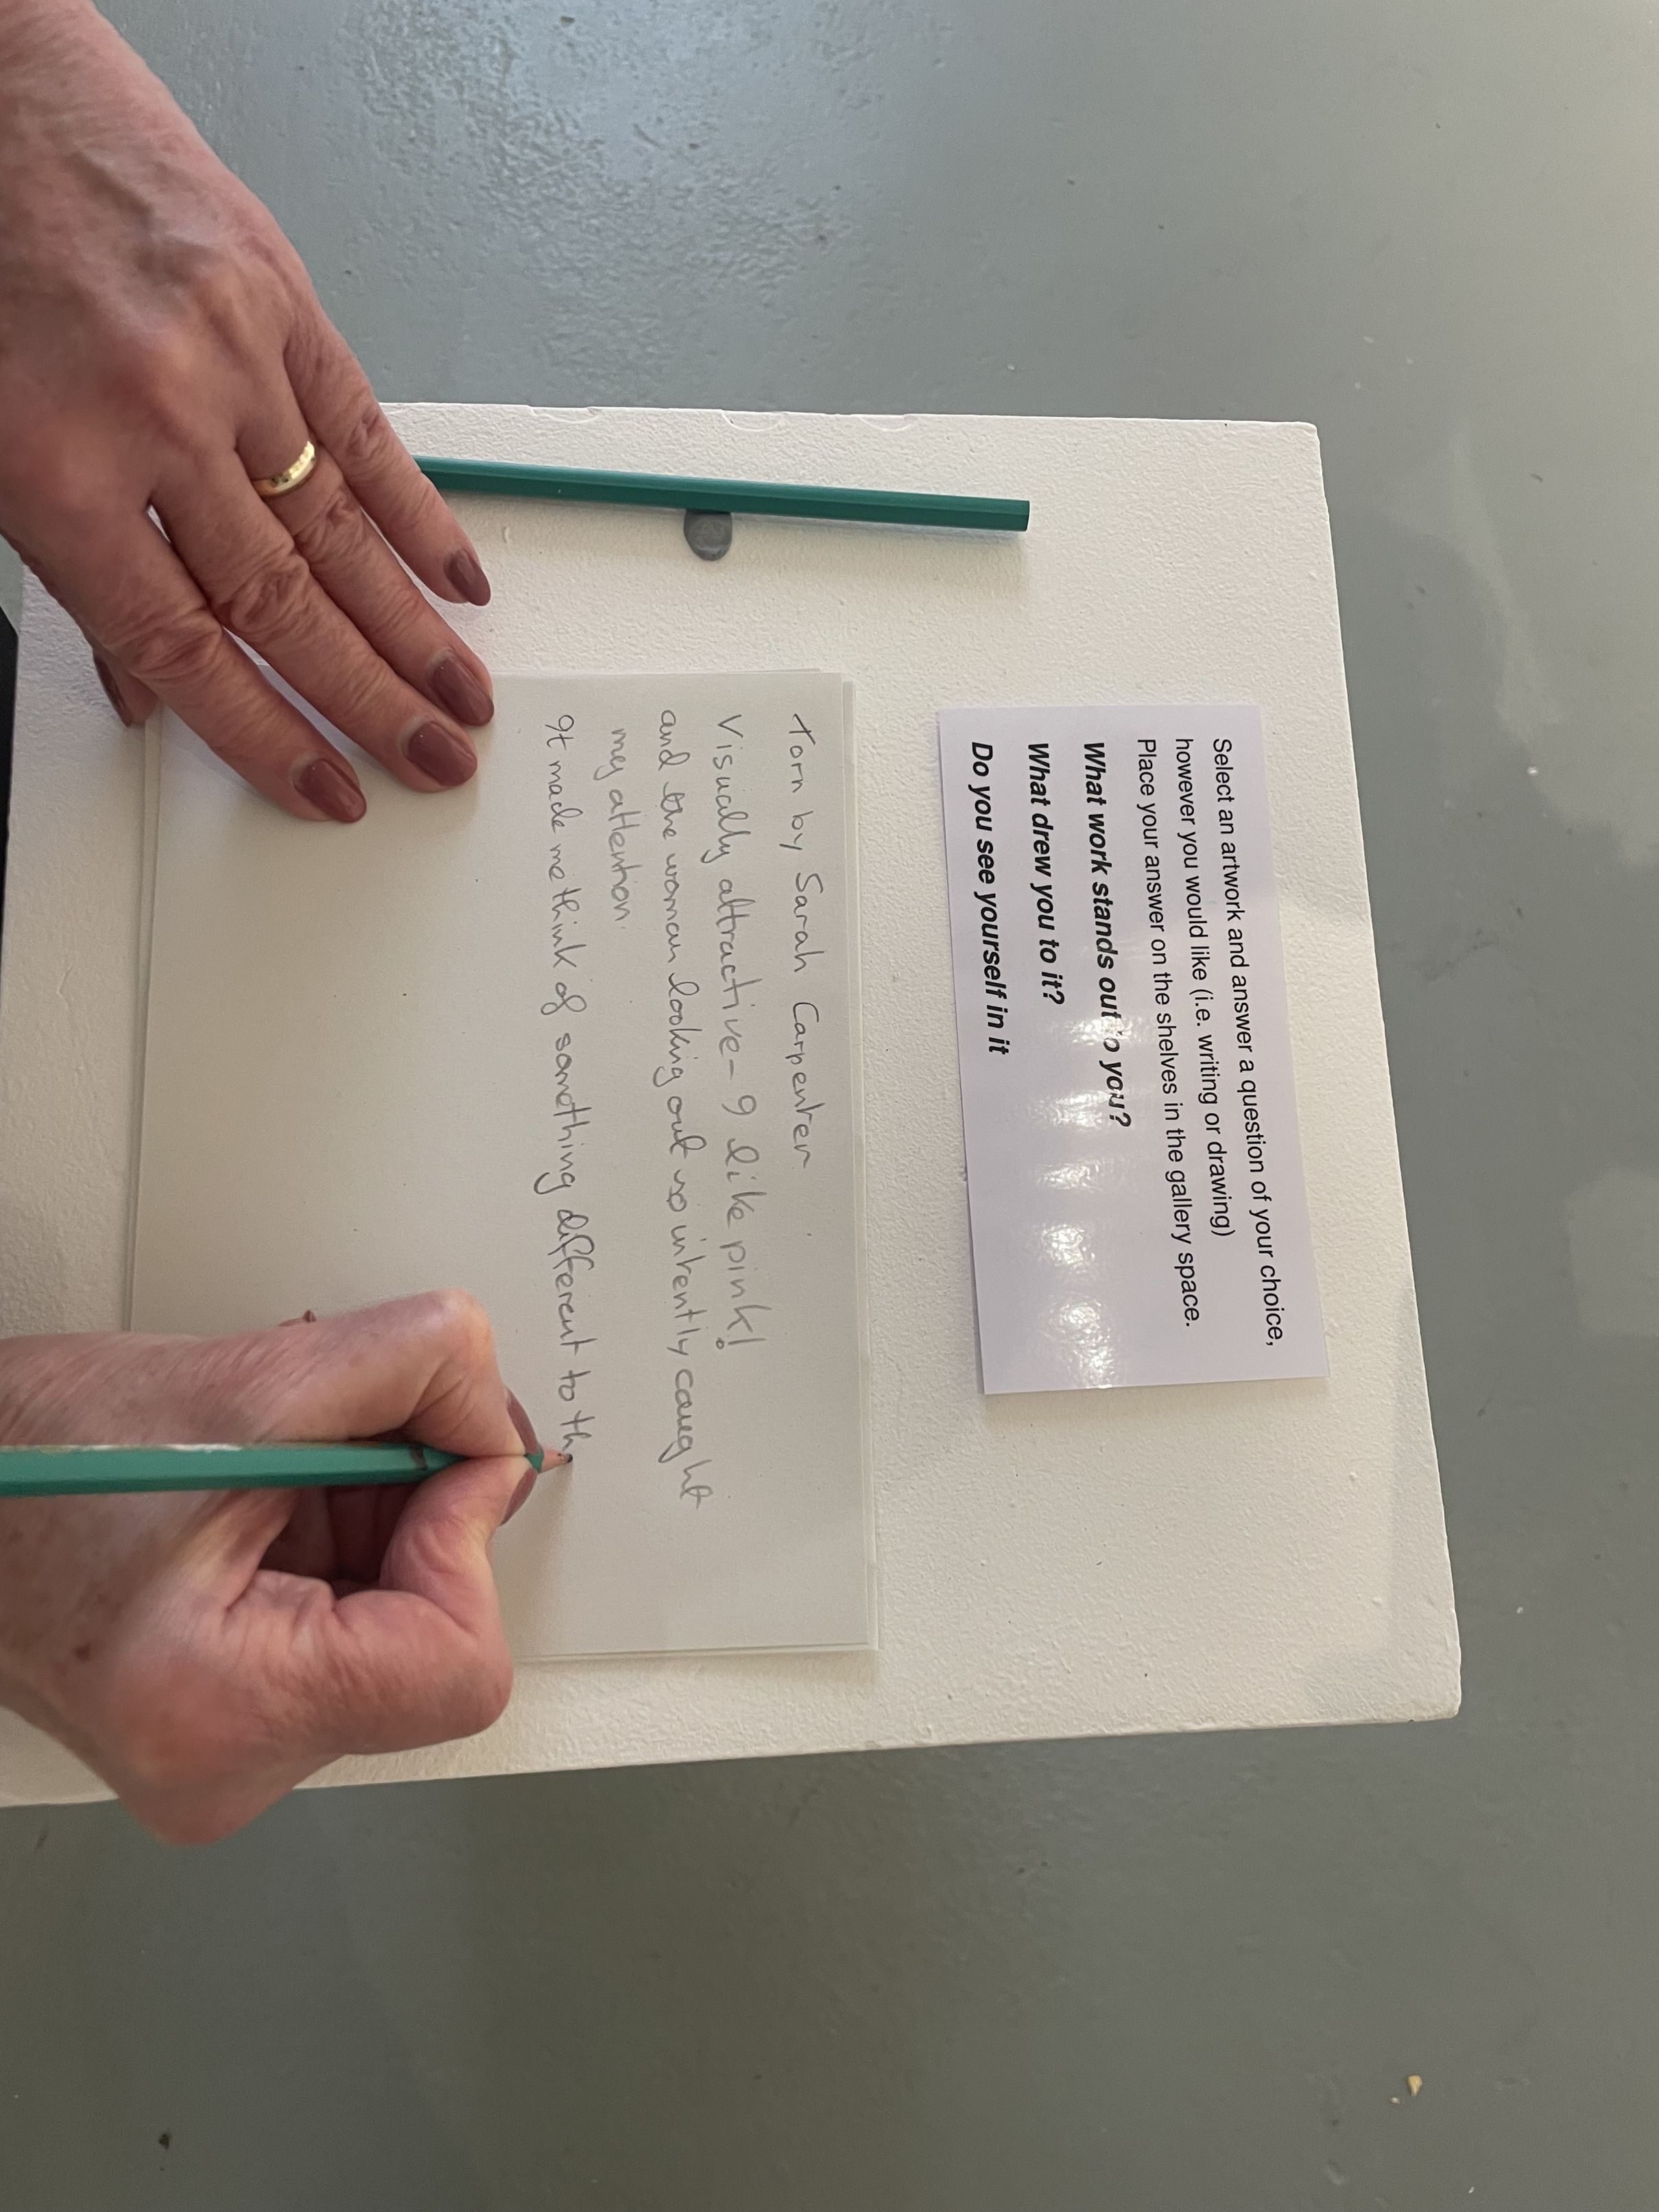 Select an artwork and answer a question of your choice,
however you would like (i.e. writing or drawing)
Place your answer on the shelves in the gallery space.
What work stands out to you?
What drew you to it?
Do you see yourself in it
Torn by Sarah Carpenter
Visually attractive - I like pink!
and the woman looking out so intently caught
my attention.
It made me think of something different to th